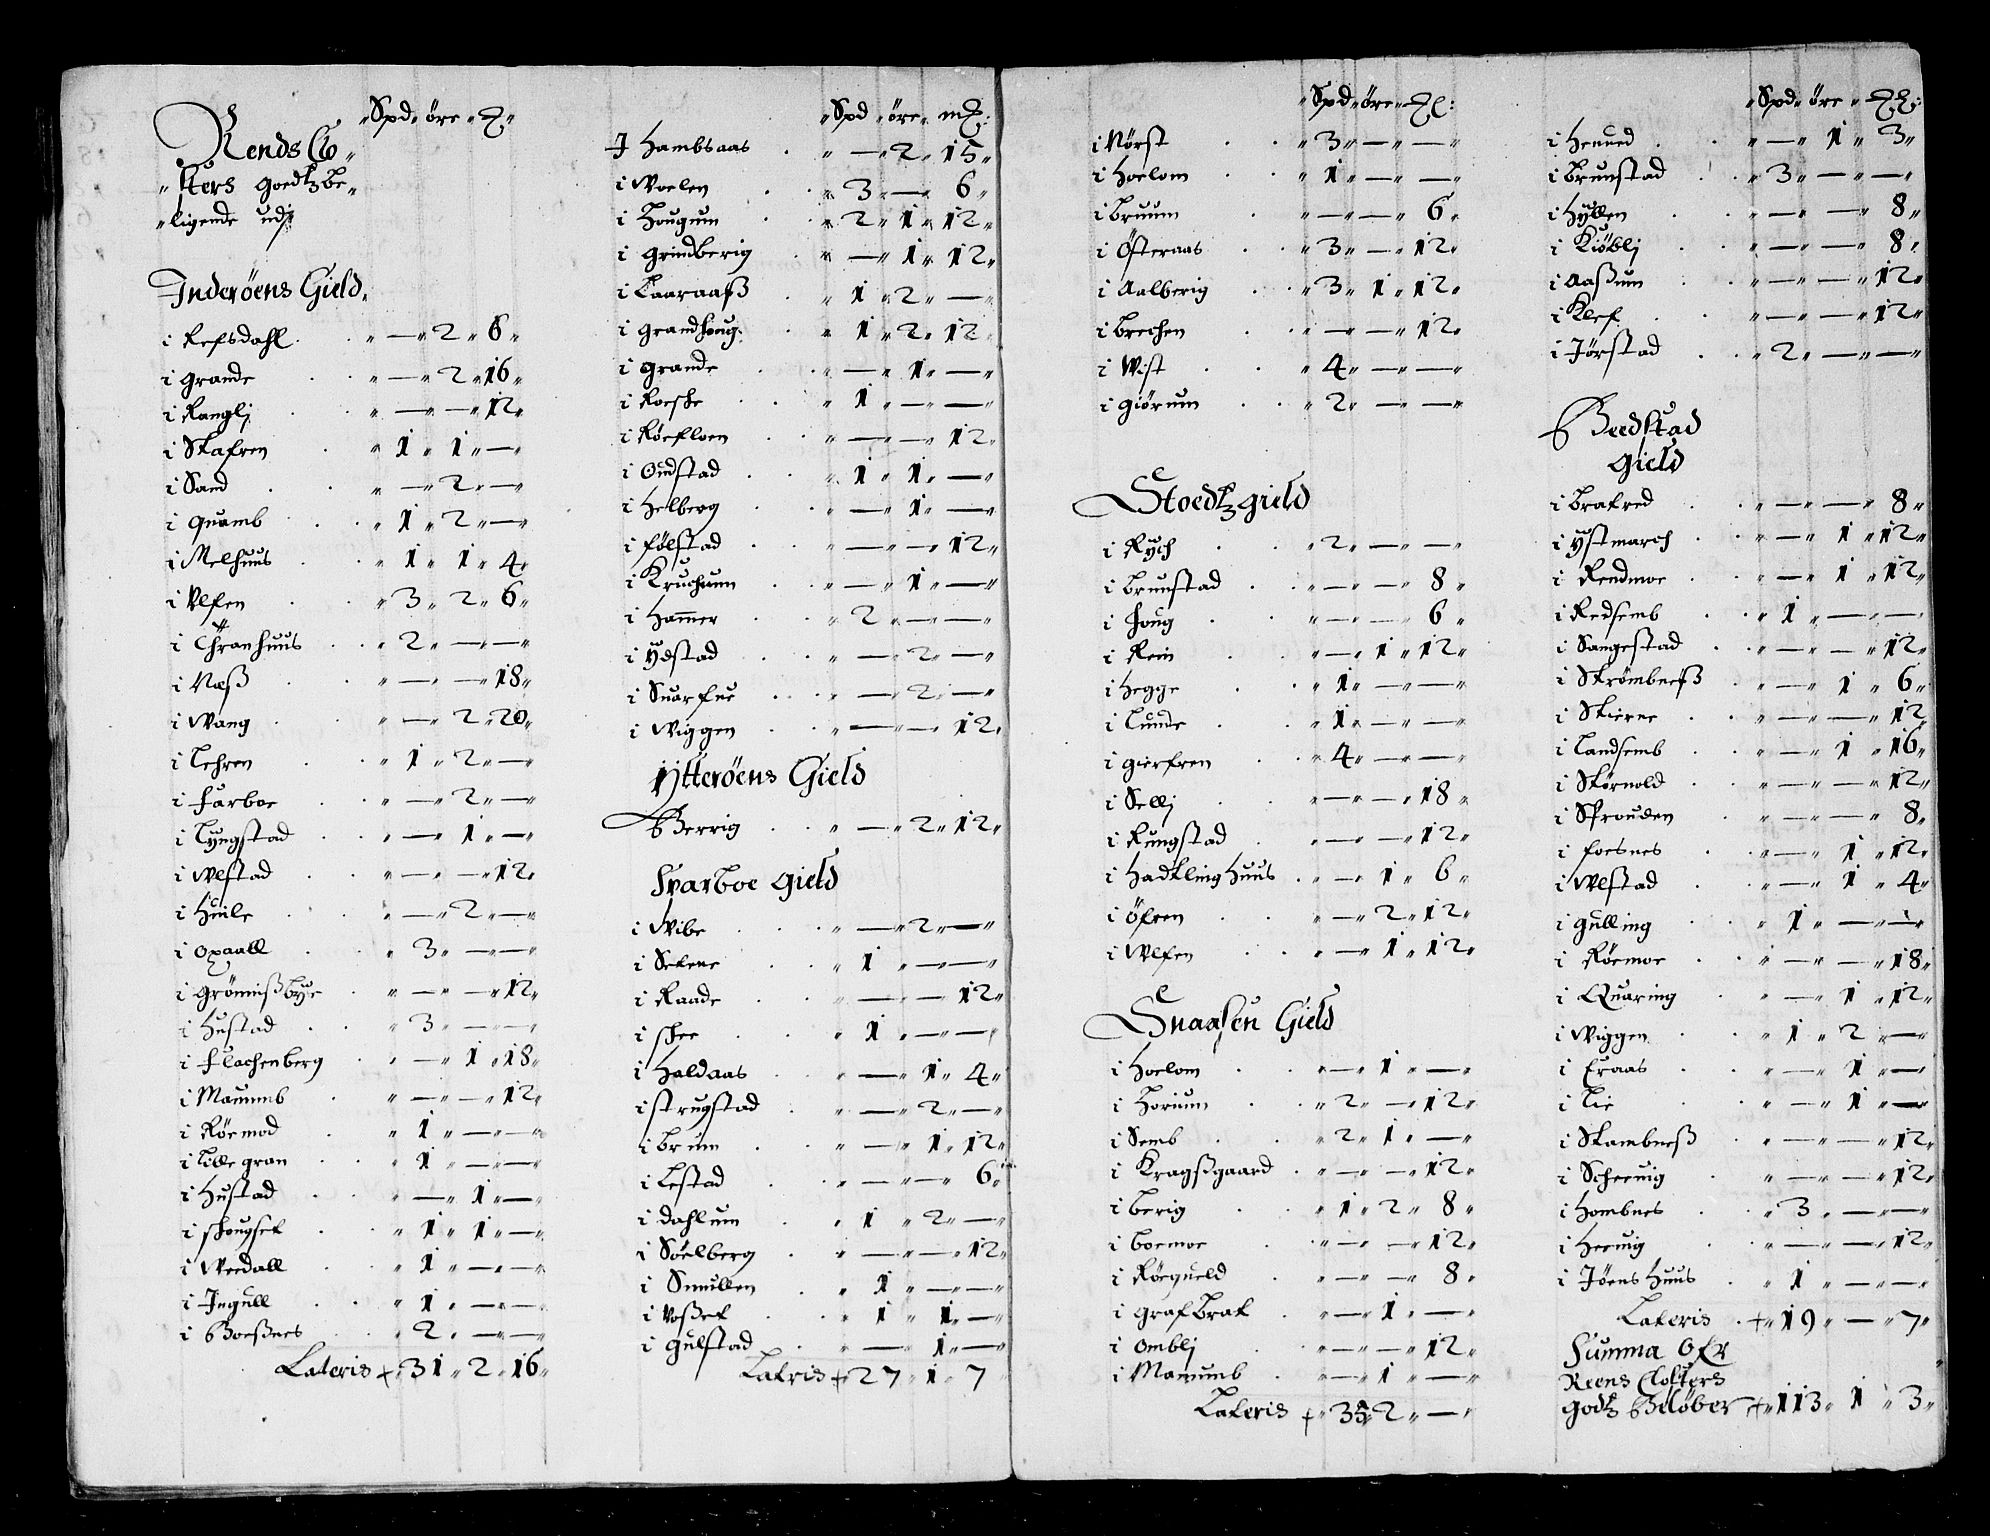 Spd öre ℔
Rends Clo
sters goedtz be
ligende udj
Inderöens Gield
i Refsdahl — 2 6
i grande — 2 16
i Ranglj — — 12
i Skafren 1 1 —
i Sand — 2 —
i Quamb 1 2 —
i Melhuus 1 1 4
i Ulfen 3 2 6
i Thranhuus 2 — —
i Næß — — 18
i Wang — 2 20
i Lehren 1 2 —
i Farboe — 2 —
i Lyngstad — 1 —
i Wlstad — — 12
i Huile — 2 —
i Opaall 3 — —
i Grömißbye — — 12
i Hustad 3 — —
i Flachenberg — 1 18
i Mauumb — — 12
i Röemod 1 — —
i Lille gran 1 — —
i Hustad — 1 —
i Skougset 1 1 —
i Weedall 1 — —
i Ingull 1 — —
i Boeßnes 2 — —
Lateris 31 2 16
Spd öre m℔
I Hambsaas — 2 15
i Woelen 3 — 6
i Hougum 2 1 12
i Grindberig — 1 12
i Laaraaß 1 2 —
i Grandhoug 1 2 12
i grande — 1 —
i Roeske 1 — —
i Röefloen — — 12
i Oudstad 1 1 —
i Helberg — 1 —
i Fölstad — — 12
i Kruchuum — 1 —
i Hammer 2 — —
i Ydstad — 2 —
i Suarfue — 2 —
i Wiggen — — 12
Ytteröens Gield
Berrig — 2 12
Sparboe gield
i Wibe — 2 —
i Selene 1 — —
i Raade — — 12
i skee 1 — —
i Haldaas — 1 4
i strugstad — 2 —
i Brum — 1 12
i Lestad — — 6
i dahlum 1 2 —
i Söelberg — — 12
i Smullen 1 — —
i Voßet 1 1 —
i gulstad — 1 —
Latris 27 1 7
Spd öre ℔
i Nörst 3 — —
i Hoelom 1 — —
i Bruum — — 6
i Österaas 3 — 12
i Aalberig 3 1 12
i Brechen — — 12
i Wist 4 — —
i Giörum 2 — —
Stoedtz gield
i Rych 2 — —
i Brunstad — — 8
i Houg — — 6
i Rein — 1 12
i Hegge 1 — —
i Lunde 1 — —
i gierfren 4 — —
i Sellj — — 18
i Rungstad — — 12
i Hadkling Huus — 1 6
i Öfren — 2 12
i Wlfen — 1 12
Snaasen Gield
i Hoelom — 1 —
i Horium 2 — 12
i Semb 2 1 —
i Kragßgaard — — 12
i berig 1 2 8
i boemoe — — 12
i Röegueld — — 8
i grafbrat — 1 —
i omblj — — 12
i Mauumb — 1 —
Lateris 35 2 —
Spd öre ℔
i Heuued — 1 3
i Brunstad 3 — —
i Hyllen — — 8
i Kiöblj — — 8
i Aaßum — — 12
i Klef — — 12
i Jörstad 2 — —
Beedstad
gield
i brafred — — 8
i ystmarch — 1 12
i Rendmoe — 1 12
i Redsemb 1 — —
i Sangestad — — 12
i Strömbneß — 1 6
i Skierue — — 12
i Landsemb — 1 16
i Skörnold — — 12
i Sprouden — — 8
i Foesnes — 1 12
i Wlstad — 1 4
i gulling 1 — —
i Röemoe — — 18
i Quaring — 1 12
i Wiggen 1 2 —
i Eraas — 1 —
i Lie — 1 —
i Skambneß — — 12
i Scheruig — — 12
i Hombnes 3 — —
i Heruig — — 12
i Jöens Huus 1 — —
Lateris 19 — 7
Summa Ofr
Reens Closters
godtz Belöber 113 1 3